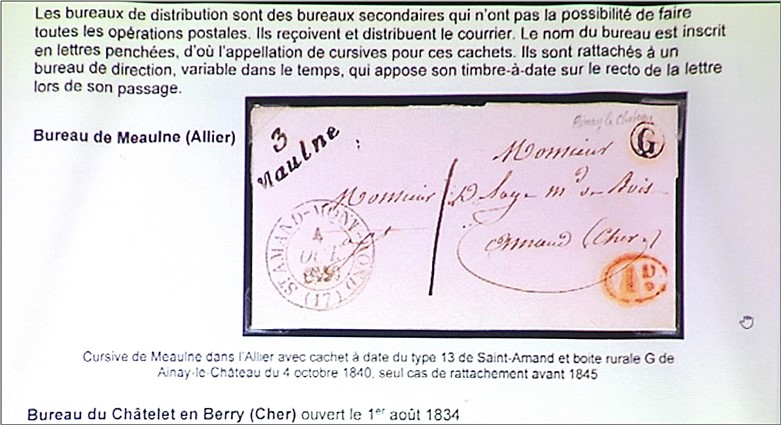 Les bureaux de distribution sont des bureaux secondaires qui n'ont pas la possibilité de faire
toutes les opérations postales. Ils reçoivent et distribuent le courrier. Le nom du bureau est inscrit
en lettres penchées, d'où l'appellation de cursives pour ces cachets. Ils sont rattachés à un
bureau de direction, variable dans le temps, qui appose son timbre-à-date sur le recto de la lettre
lors de son passage.
Bureau de Meaulne (Allier)
Ainay le Chateau
3
Maulne
G
Monsieur
Monsieur
ST AMAND-MONT-ROND (17)
4
Amand (Cher)
1 D.
Cursive de Meaulne dans l'Allier avec cachet à date du type 13 de Saint-Amand et boite rurale G de
Ainay-le-Château du 4 octobre 1840, seul cas de rattachement avant 1845
Bureau du Châtelet en Berry (Cher) ouvert le 1er août 1834